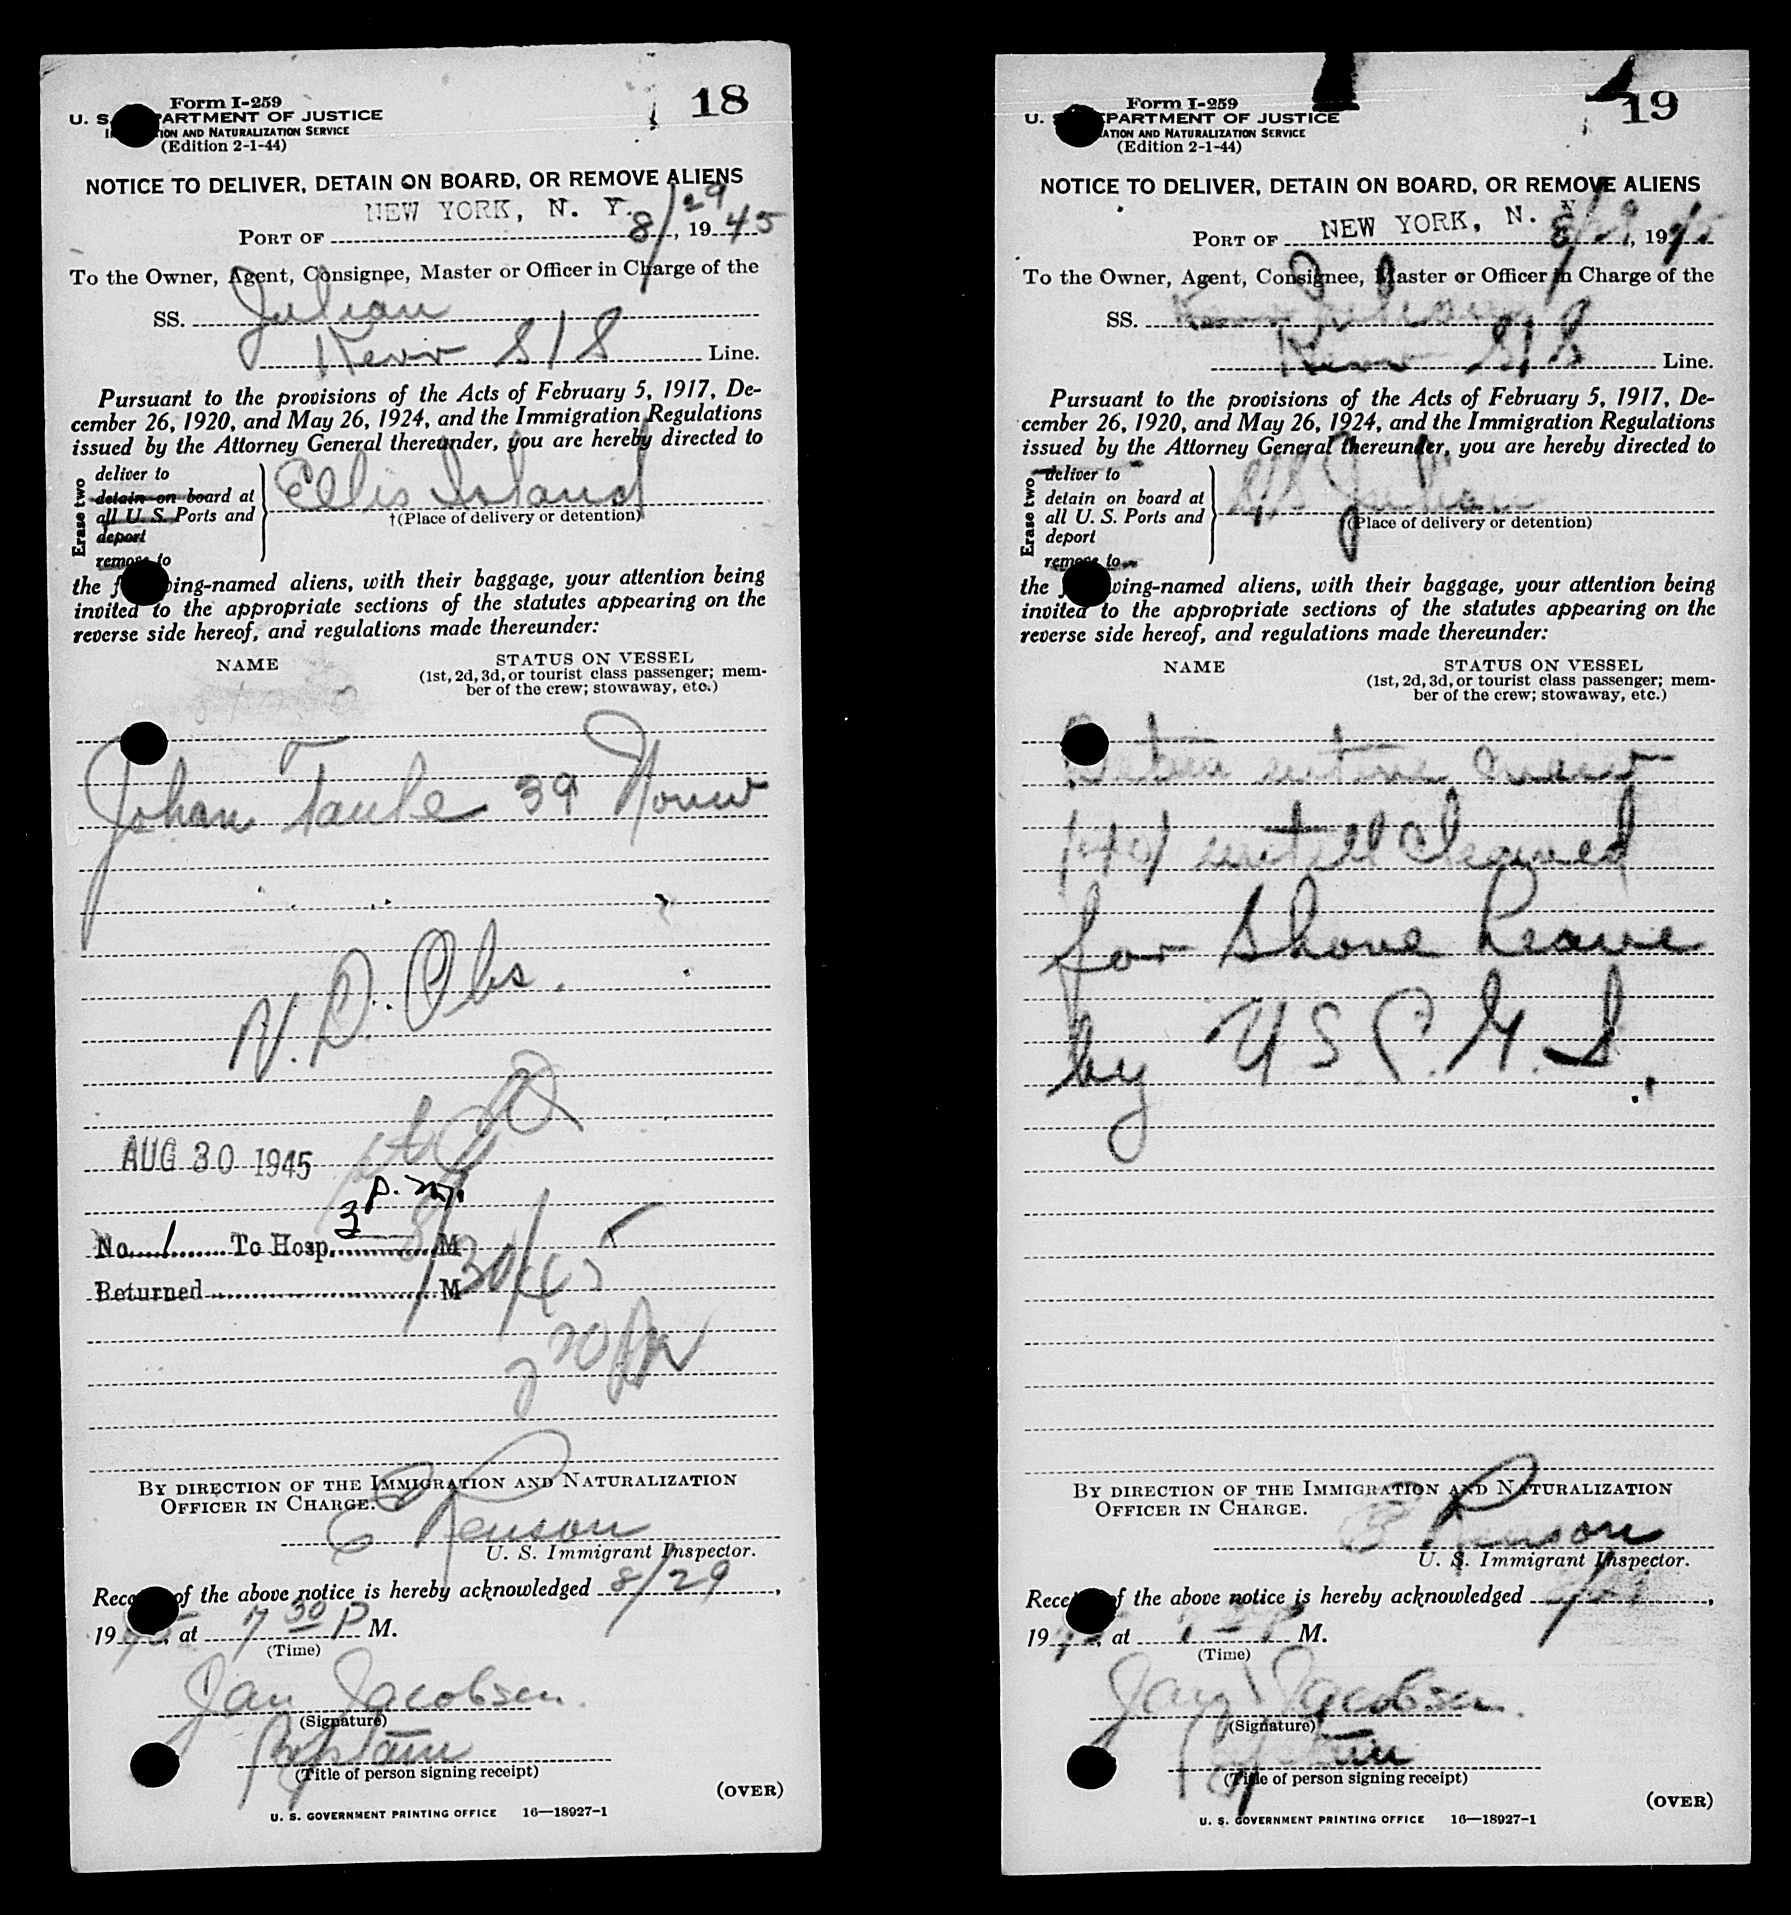 Form I-259
18
U. S. DEPARTMENT OF JUSTICE
IMMIGRATION AND NATURALIZATION SERVICE
(Edition 2-1-44)
NOTICE TO DELIVER, DETAIN ON BOARD, OR REMOVE ALIENS
PORT OF NEW YORK, N. Y. 8/29, 1945
To the Owner, Agent, Consignee, Master or Officer in Charge of the
SS. Julian
Kerr S/S Line.
Pursuant to the provisions of the Acts of February 5, 1917, De-
cember 26, 1920, and May 26, 1924, and the Immigration Regulations
issued by the Attorney General thereunder, you are hereby directed to
Erase two
deliver to
detain on board at
all U. S. Ports and
deport
remove to
Ellis Island
†(Place of delivery or detention)
the following-named aliens, with their baggage, your attention being
invited to the appropriate sections of the statutes appearing on the
reverse side hereof, and regulations made thereunder:
NAME
STATUS ON VESSEL
(1st, 2d, 3d, or tourist class passenger; mem-
ber of the crew; stowaway, etc.)
Johan Taule 39 Norw
V. D. Obs.
AUG 30 1945
3 p.m.
No. 1 To Hosp. M
8/30/45
Returned M
By direction of the Immigration and Naturalization
Officer in Charge.
E Renson
U. S. Immigrant Inspector.
Receipt of the above notice is hereby acknowledged 8/29,
1945, at 7 30 P M.
(Time)
Jan Jacobsen.
(Signature)
Captain
(Title of person signing receipt)
(OVER)
U. S. GOVERNMENT PRINTING OFFICE 16—18927-1
Form I-259
19
U. S. DEPARTMENT OF JUSTICE
IMMIGRATION AND NATURALIZATION SERVICE
(Edition 2-1-44)
NOTICE TO DELIVER, DETAIN ON BOARD, OR REMOVE ALIENS
PORT OF NEW YORK, N. Y. 8/29, 1945
To the Owner, Agent, Consignee, Master or Officer in Charge of the
SS. Julian
Kerr S/S Line.
Pursuant to the provisions of the Acts of February 5, 1917, De-
cember 26, 1920, and May 26, 1924, and the Immigration Regulations
issued by the Attorney General thereunder, you are hereby directed to
Erase two
deliver to
detain on board at
all U. S. Ports and
deport
remove to
S/S Julian
†(Place of delivery or detention)
the following-named aliens, with their baggage, your attention being
invited to the appropriate sections of the statutes appearing on the
reverse side hereof, and regulations made thereunder:
NAME
STATUS ON VESSEL
(1st, 2d, 3d, or tourist class passenger; mem-
ber of the crew; stowaway, etc.)
Detain entire crew
until cleared
for Shore Leave
by U S P. H. S.
By direction of the Immigration and Naturalization
Officer in Charge.
E Renson
U. S. Immigrant Inspector.
Receipt of the above notice is hereby acknowledged 8/29,
1945, at M.
(Time)
Jan Jacobsen.
(Signature)
Captain
(Title of person signing receipt)
(OVER)
U. S. GOVERNMENT PRINTING OFFICE 16—18927-1